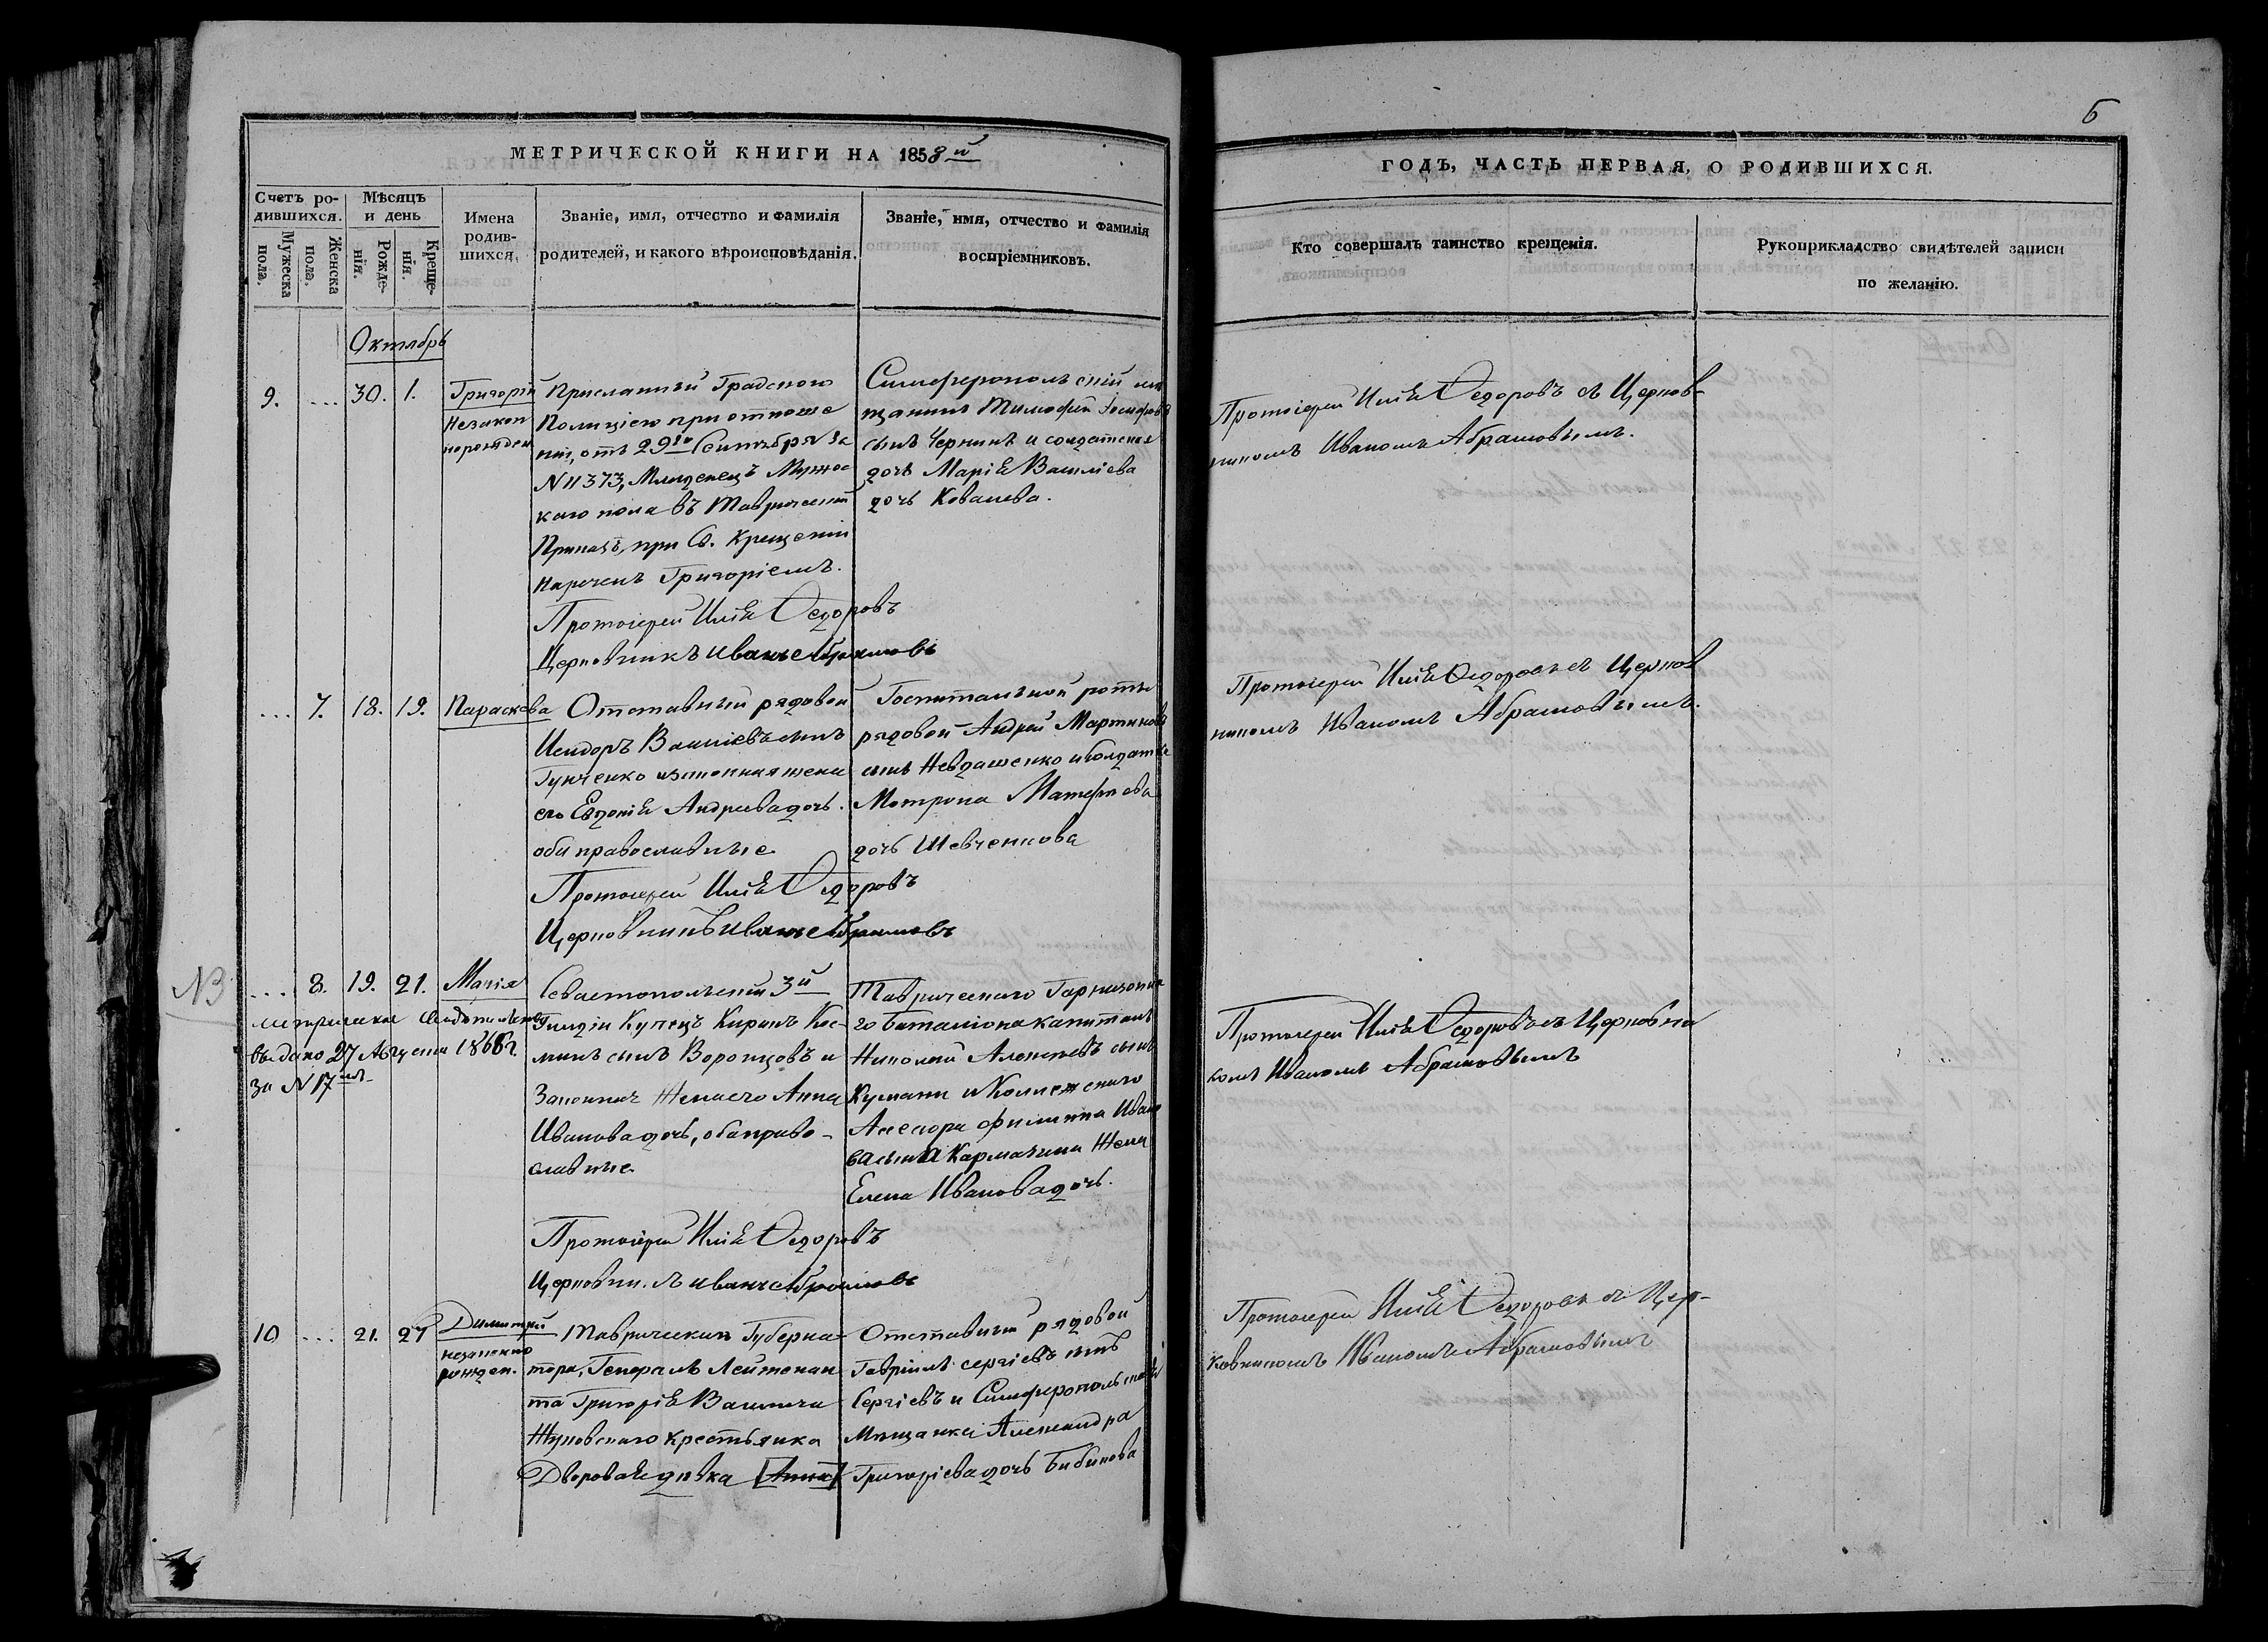 6
МЕТРИЧЕСКОЙ КНИГИ НА 1858й
ГОДЪ, ЧАСТЬ ПЕРВАЯ, О РОДИВШИХСЯ.
Счетъ ро-
дившихся.
Мужеска
пола.
Женска
пола.
Мѣсяцъ
и день
Рожде-
нія.
Креще-
нія.
Имена
родив-
шихся.
Званіе, имя, отчество и фамилія
родителей, и какого вѣроисповѣданія.
Званіе, имя, отчество и фамилія
воспріемниковъ.
Кто совершалъ таинство крещенія.
Рукоприкладство свидѣтелей записи
по желанію.
Октябрь
9. ... 30. 1. Григорій
Незакон
норожден
Присланный Градскою
Полиціею при отноше
ніи, отъ 29го Сентября за
N 11373, Младенецъ Мужес
каго пола въ Таврическій
Приказъ, при Св. Крещеніи
нареченъ Григоріемъ.
Протоіерей Илія Ѳедоровъ
Церковникъ Иванъ Абрамовъ
Симферопольскій мѣ
щанинъ Тимофей
сынъ Чернинъ и солдатская
дочь Марія Василіева
дочь Ковалева.
Протоіерей Илія Ѳедоровъ съ Церков-
никомъ Иваномъ Абрамовымъ.
... 7. 18. 19. Параскева
Отставный рядовой
Исидоръ Василіевъ сынъ
Гунченко и законная жена
его Евдокія Андреева дочь.
оба православные
Протоіерей Илія Ѳедоровъ
Церковникъ Иванъ Абрамовъ
Госпитальной роты
рядовой Андрей Мартиновъ
сынъ Невдашенко и Солдатка
Мотрона Матфѣева
дочь Шевченкова
Протоіерей Илія Ѳедоровъ съ Церков
никомъ Иваномъ Абрамовымъ.
NB
... 8. 19. 21. Марія
метрическое свидѣтельство
выдано 27 Августа 1868 г.
за N 17мъ
Севастопольскій 3й
Гильдіи Купецъ Киръ Кос-
минъ сынъ Воронцовъ и
Законная Жена его Анна
Иванова дочь, оба право-
славные
Протоіерей Илія Ѳедоровъ
Иванъ Абрамовъ
Таврическаго Гарнизонна
го баталіона капитанъ
Николай Алексѣевъ сынъ
Кумани и Коллежскаго
Асессора Филиппа Ивано
ва сына Кармазина Жена
Елена Иванова дочь.
Протоіерей Илія Ѳедоровъ съ Церковни
комъ Иваномъ Абрамовымъ
10 ... 21. 27 Димитрій
незаконно
рожден.
Таврическаго Губерна-
тора, Генералъ Лейтенан
та Григорія Васильича
Жуковскаго крестьянка
Дворовая дѣвка [Анна]
Отставный рядовой
Гавріилъ Сергіевъ сынъ
Сергіевъ и Симферопольская
Мѣщанка Александра
Григоріева дочь Бибикова
Протоіерей Илія Ѳедоровъ съ Цер-
ковникомъ Иваномъ Абрамовымъ